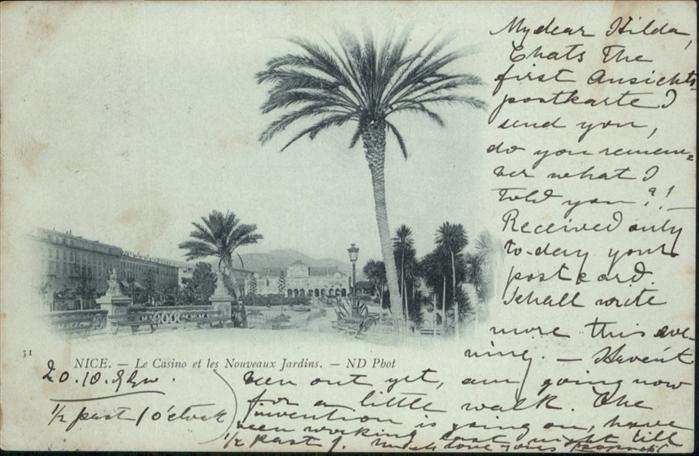 My dear Hilda,
Thats The
first Ansichts
postkarte I
send you,
do you remem
ber what I
told you?!
Received only
to-day your
postcard
shall write
more this eve
ning. — Havent
31
NICE. — Le Casino et les Nouveaux Jardins. — ND Phot
20.10.
½ past 1 o'clock
been out yet, am going now
for a little walk. The
invention is going on, have
been working last night till
½ past 1.